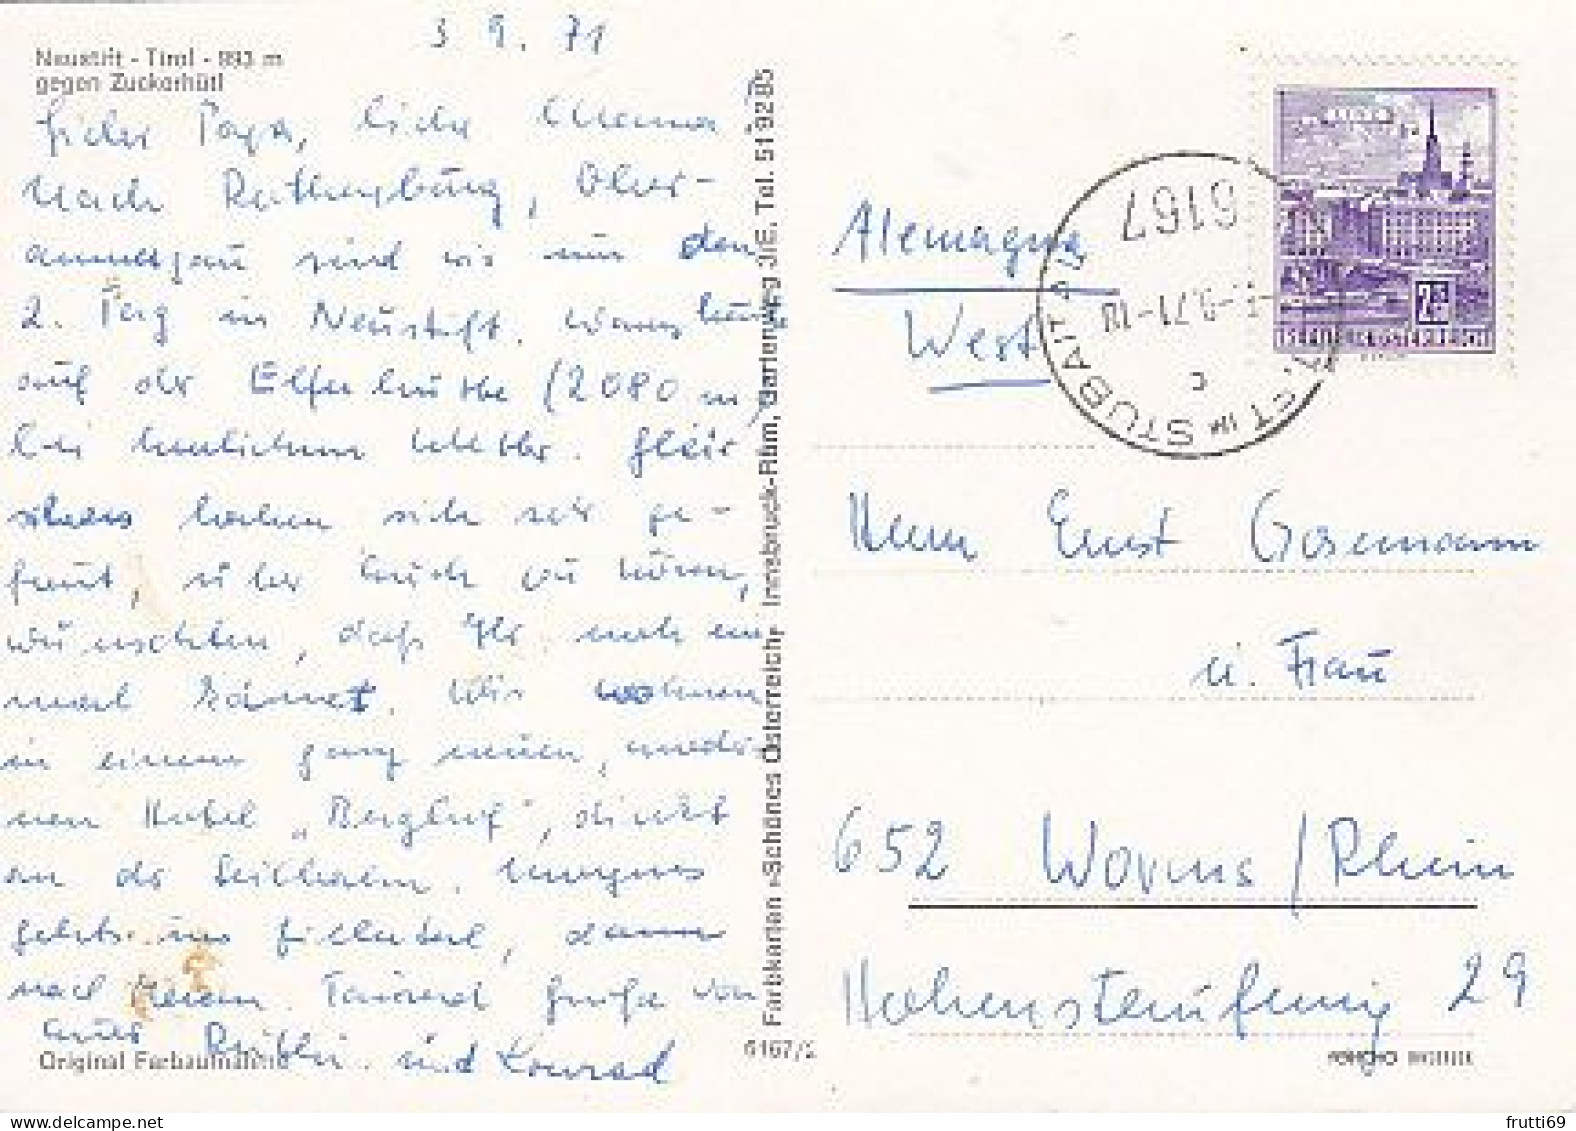 3. 9. 71
Neustift - Tirol - 993 m
gegen Zuckerhütl
Lieber Papa, liebe Mama,
Nach Rothenburg, Ober-
ammergau sind wir nun den
2. Tag in Neustift. Waren heute
auf der Elferhütte (2080 m)
bei herrlichem Wetter.
haben sich sehr ge-
freut, über Euch zu hören,
wünschten, daß Ihr noch ein
mal kämet. Wir wohnen
in einem ganz neuen, moder-
nen Hotel „Berghof", direkt
an der Seilbahn. Morgen
gehts ins Zillertal, dann
nach Meran. Tausend Grüße von
und Konrad
Original Farbaufnahme
Farbkarten »Schönes Österreich« Innsbruck-Rum, Gartenweg 3/E, Tel. 519285
6167/2
Alemagna
West
6167
STUBAITAL
c
Herrn Ernst Gossmann
u. Frau
652 Worms / Rhein
Hohenstaufenring 29
frutti69